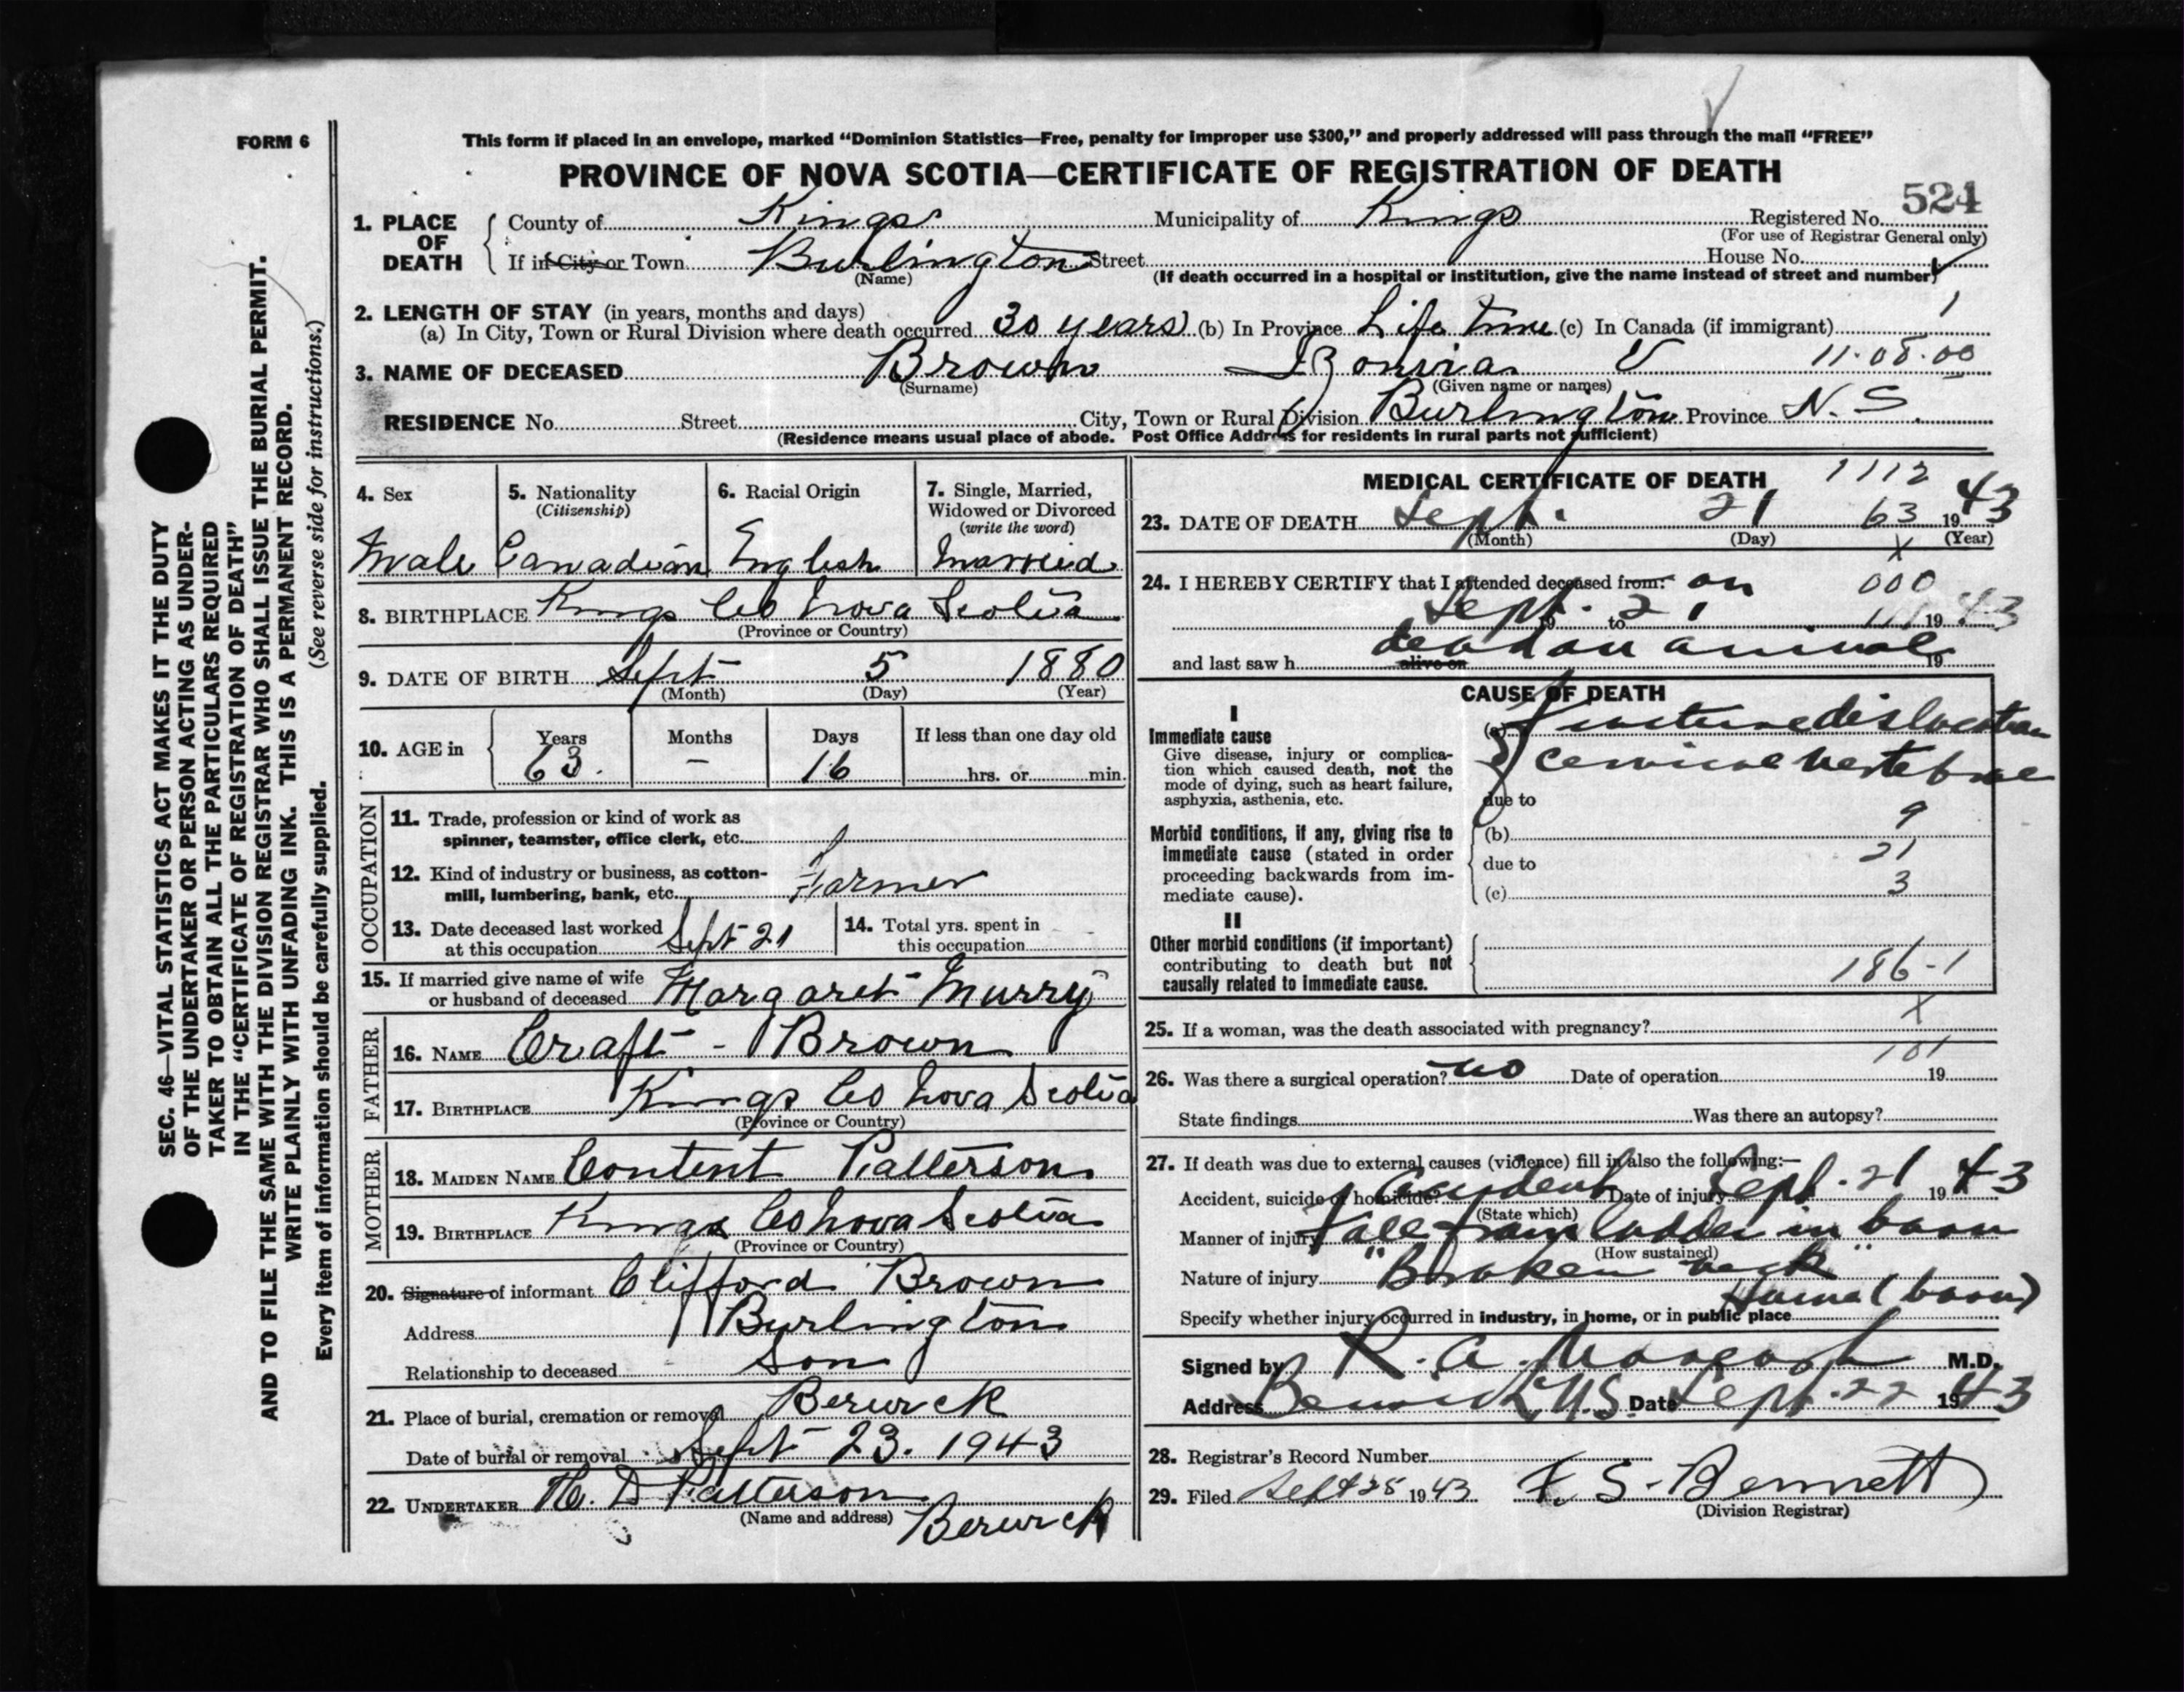 FORM 6
This form if placed in an envelope, marked “Dominion Statistics—Free, penalty for improper use $300,” and properly addressed will pass through the mail “FREE”
PROVINCE OF NOVA SCOTIA—CERTIFICATE OF REGISTRATION OF DEATH
524
1. PLACE OF DEATH County of Kings Municipality of Kings Registered No.
(For use of Registrar General only)
If in City or Town Burlington Street House No.
(Name) (If death occurred in a hospital or institution, give the name instead of street and number)
2. LENGTH OF STAY (in years, months and days) 1
(a) In City, Town or Rural Division where death occurred 30 years (b) In Province Life time (c) In Canada (if immigrant)
3. NAME OF DECEASED Brown V 11·08·00
(Surname) (Given name or names)
RESIDENCE No. Street City, Town or Rural Division Burlington Province N. S.
(Residence means usual place of abode. Post Office Address for residents in rural parts not sufficient)
4. Sex 5. Nationality (Citizenship) 6. Racial Origin 7. Single, Married, Widowed or Divorced (write the word)
Male Canadian English Married
8. BIRTHPLACE Kings Co Nova Scotia
(Province or Country)
9. DATE OF BIRTH Sept 5 1880
(Month) (Day) (Year)
10. AGE in Years Months Days If less than one day old
63. – 16 hrs. or min.
OCCUPATION
11. Trade, profession or kind of work as
spinner, teamster, office clerk, etc.
12. Kind of industry or business, as cotton-
mill, lumbering, bank, etc. Farmer
13. Date deceased last worked
at this occupation Sept 21
14. Total yrs. spent in
this occupation
15. If married give name of wife
or husband of deceased Margaret Murry
FATHER
16. NAME Craft - Brown
17. BIRTHPLACE Kings Co Nova Scotia
(Province or Country)
MOTHER
18. MAIDEN NAME Content Patterson
19. BIRTHPLACE Kings Co Nova Scotia
(Province or Country)
20. Signature of informant Clifford Brown
Address Burlington
Relationship to deceased Son
21. Place of burial, cremation or removal Berwick
Date of burial or removal Sept 23. 1943
22. UNDERTAKER D Patterson
(Name and address) Berwick
MEDICAL CERTIFICATE OF DEATH 1112
23. DATE OF DEATH Sept. 21 63 1943
(Month) (Day) (Year)
X
24. I HEREBY CERTIFY that I attended deceased from: on 000
Sept. 21 19 to 19 43
and last saw h alive on dead on arrival 19
CAUSE OF DEATH
I
Immediate cause
Give disease, injury or complica-
tion which caused death, not the
mode of dying, such as heart failure,
asphyxia, asthenia, etc.
(a) Fracture dislocation
cervical vertebrae
due to
Morbid conditions, if any, giving rise to
immediate cause (stated in order
proceeding backwards from im-
mediate cause).
(b) 9
due to 21
(c) 3
II
Other morbid conditions (if important)
contributing to death but not
causally related to immediate cause.
186-1
X
25. If a woman, was the death associated with pregnancy?
101
26. Was there a surgical operation? no Date of operation 19
State findings Was there an autopsy?
27. If death was due to external causes (violence) fill in also the following:—
Accident, suicide or homicide? Accident Date of injury Sept. 21 1943
(State which)
Manner of injury Fall from ladder in barn
(How sustained)
Nature of injury "Broken neck"
Home (barn)
Specify whether injury occurred in industry, in home, or in public place
Signed by R. A. M.D.
Address Berwick, N.S. Date Sept. 22 1943
28. Registrar's Record Number
29. Filed Sept 25 1943 F. S. Bennett
(Division Registrar)
SEC. 46—VITAL STATISTICS ACT MAKES IT THE DUTY
OF THE UNDERTAKER OR PERSON ACTING AS UNDER-
TAKER TO OBTAIN ALL THE PARTICULARS REQUIRED
IN THE “CERTIFICATE OF REGISTRATION OF DEATH”
AND TO FILE THE SAME WITH THE DIVISION REGISTRAR WHO SHALL ISSUE THE BURIAL PERMIT.
WRITE PLAINLY WITH UNFADING INK. THIS IS A PERMANENT RECORD.
Every item of information should be carefully supplied. (See reverse side for instructions.)